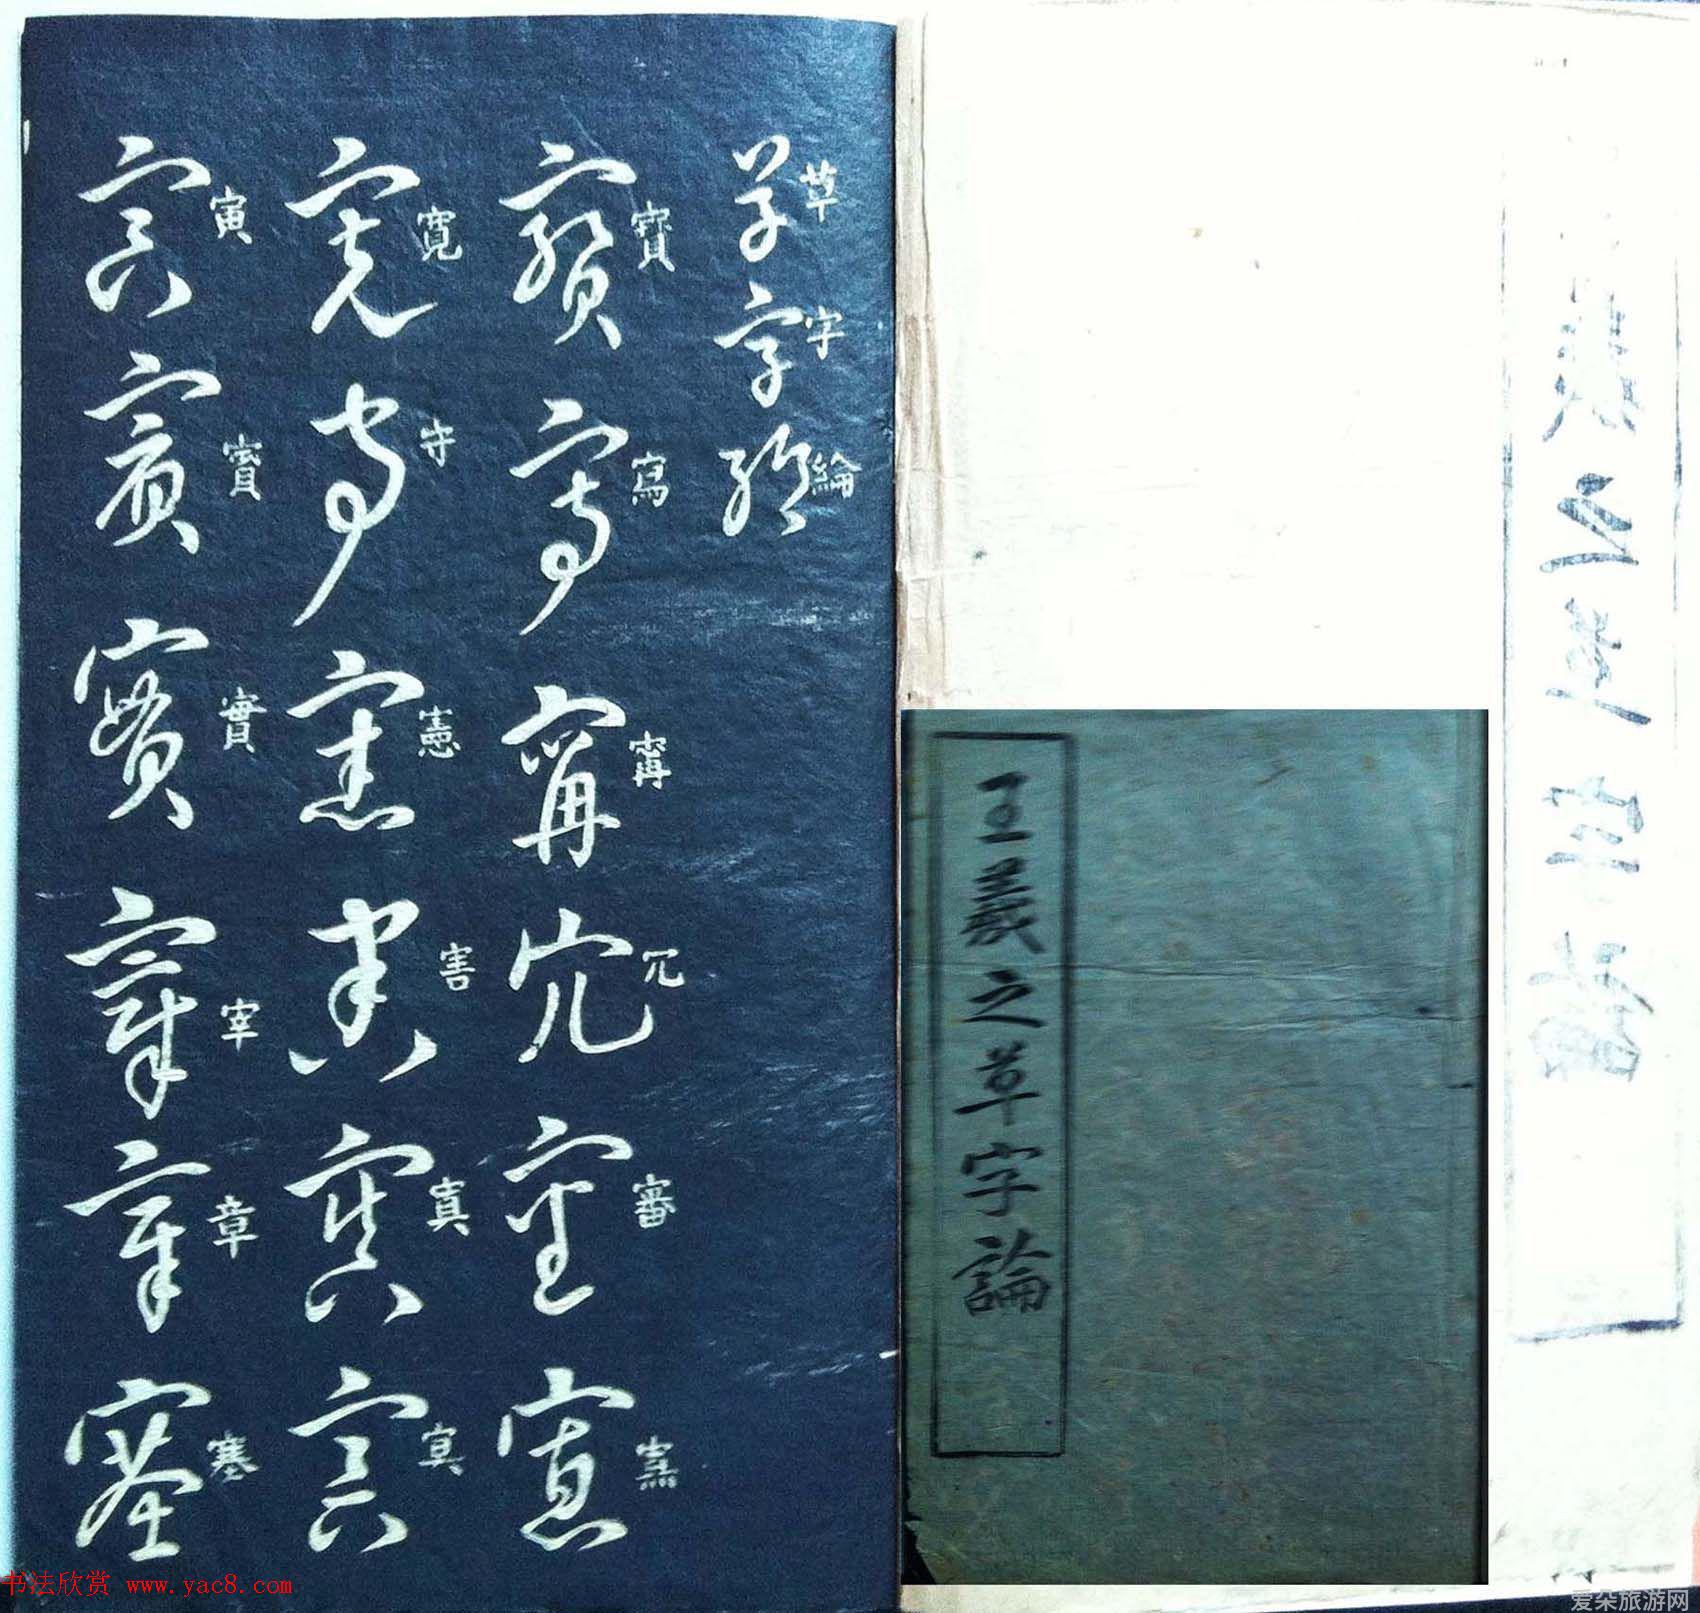 草字綸
寶寫甯冗審
寬守憲害真寅
寅賓實宰章塞
王羲之草字論
书法欣赏 www.yac8.com
爱朵旅游网